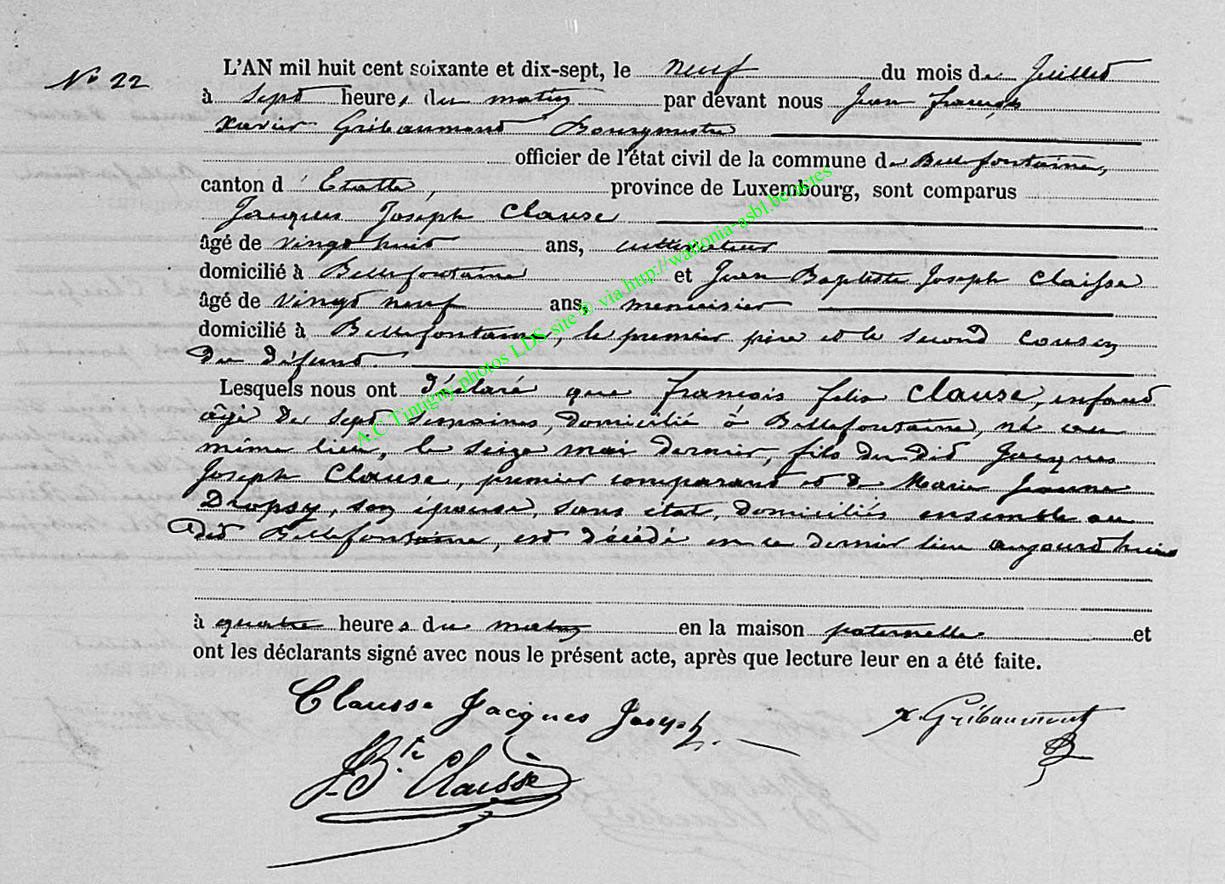 N° 22
L'AN mil huit cent soixante et dix-sept, le neuf du mois de Juillet
à sept heures du matin par devant nous Jean François
Xavier Gribaumont Bourgmestre
officier de l'état civil de la commune de Bellefontaine,
canton d'Etalle, province de Luxembourg, sont comparus
Jacques Joseph Clausse
âgé de vingt huit ans, cultivateur
domicilié à Bellefontaine et Jean Baptiste Joseph Claisse
âgé de vingt neuf ans, menuisier
domicilié à Bellefontaine, le premier père et le second cousin
du défunt.
Lesquels nous ont déclaré que François Félix Clausse, enfant
âgé de sept semaines, domicilié à Bellefontaine, né au
même lieu, le seize mai dernier, fils du dit Jacques
Joseph Clausse, premier comparant et de Marie Jeanne
Dropsy, son épouse, sans état, domiciliés ensemble au
dit Bellefontaine, est décédé en ce dernier lieu aujourd'hui
à quatre heures du matin en la maison paternelle et
ont les déclarants signé avec nous le présent acte, après que lecture leur en a été faite.
Clausse Jacques Joseph X. Gribaumont
J. Bte Claisse
A.C Tintigny photos LDS site © via http://wallonia-asbl.be/actes